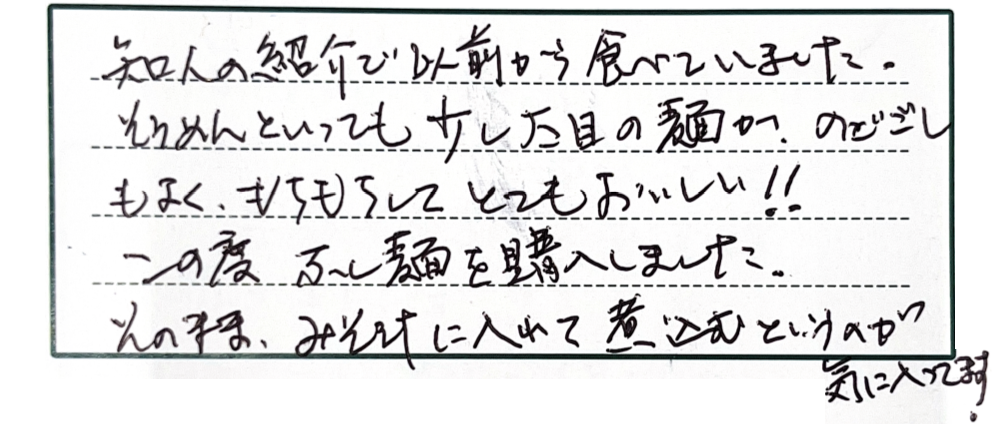 知人の紹介で以前から食べていました。
そうめんといっても少し太目の麺が、のどごし
もよく、もちもちしてとてもおいしい!!
この度 ふし麺を購入しました。
そのまま、みそ汁に入れて煮込むというのが
気に入ってます!